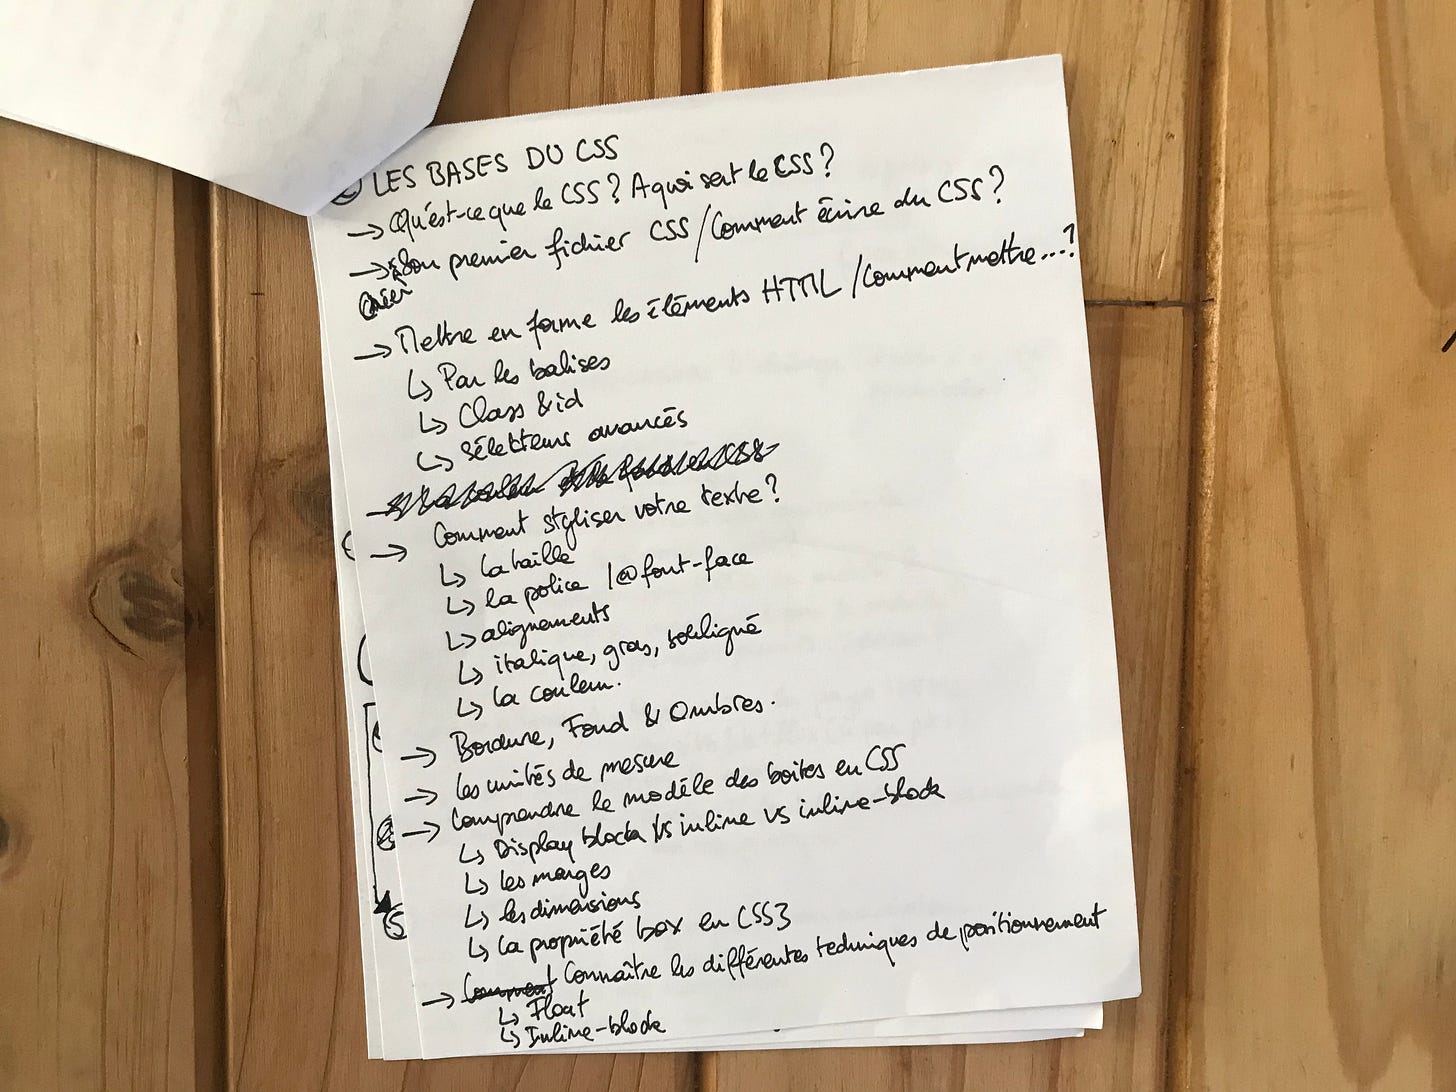 ② LES BASES DU CSS
→ Qu'est-ce que le CSS? A quoi sert le CSS?
→ Son premier fichier CSS / Comment écrire du CSS?
Créer
→ Mettre en forme les éléments HTML / Comment mettre...?
↳ Par les balises
↳ Class & id
↳ Sélecteurs avancés
→ Comment styliser votre texte?
↳ La taille
↳ la police / @font-face
↳ alignements
↳ italique, gras, souligné
↳ la couleur.
→ Bordure, Fond & Ombres.
→ Les unités de mesure
→ Comprendre le modèle des boites en CSS
↳ Display block vs inline vs inline-block
↳ les marges
↳ les dimensions
↳ La propriété box en CSS3
→ Comment Connaître les différentes techniques de positionnement
↳ Float
↳ Inline-block